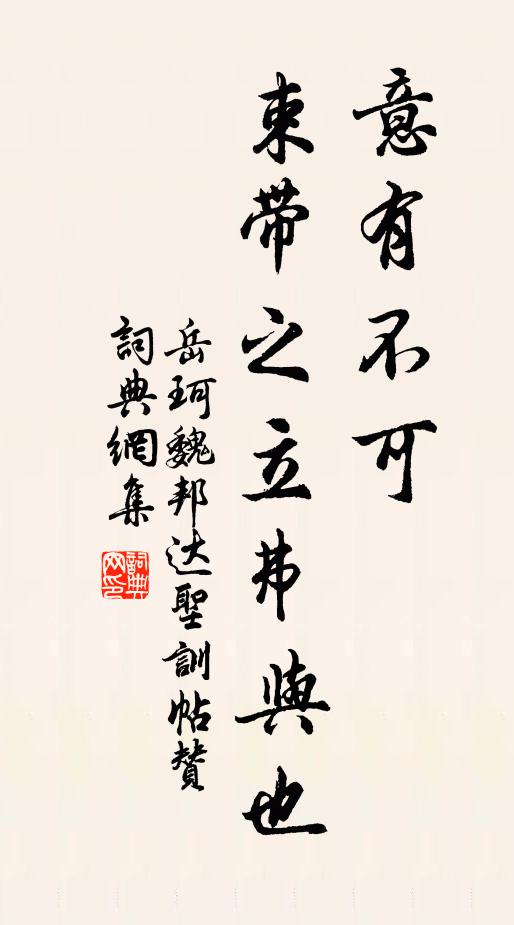 意有不可
束带之立弗與也
岳珂魏邦达聖訓帖贊
詞典網集
詞典
网印